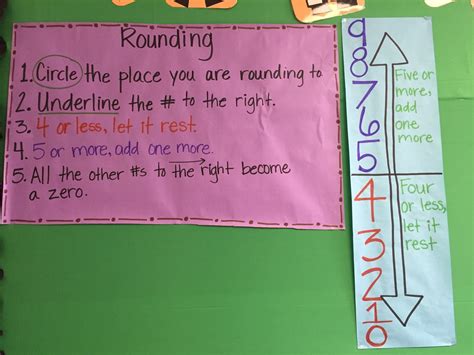 Rounding
1. Circle the place you are rounding to.
2. Underline the # to the right.
3. 4 or less, let it rest.
4. 5 or more, add one more.
5. All the other #s to the right become
a zero.
9
8
7
6
5
Five or
more,
add
one
more
4
3
2
1
0
Four
or less,
let it
rest